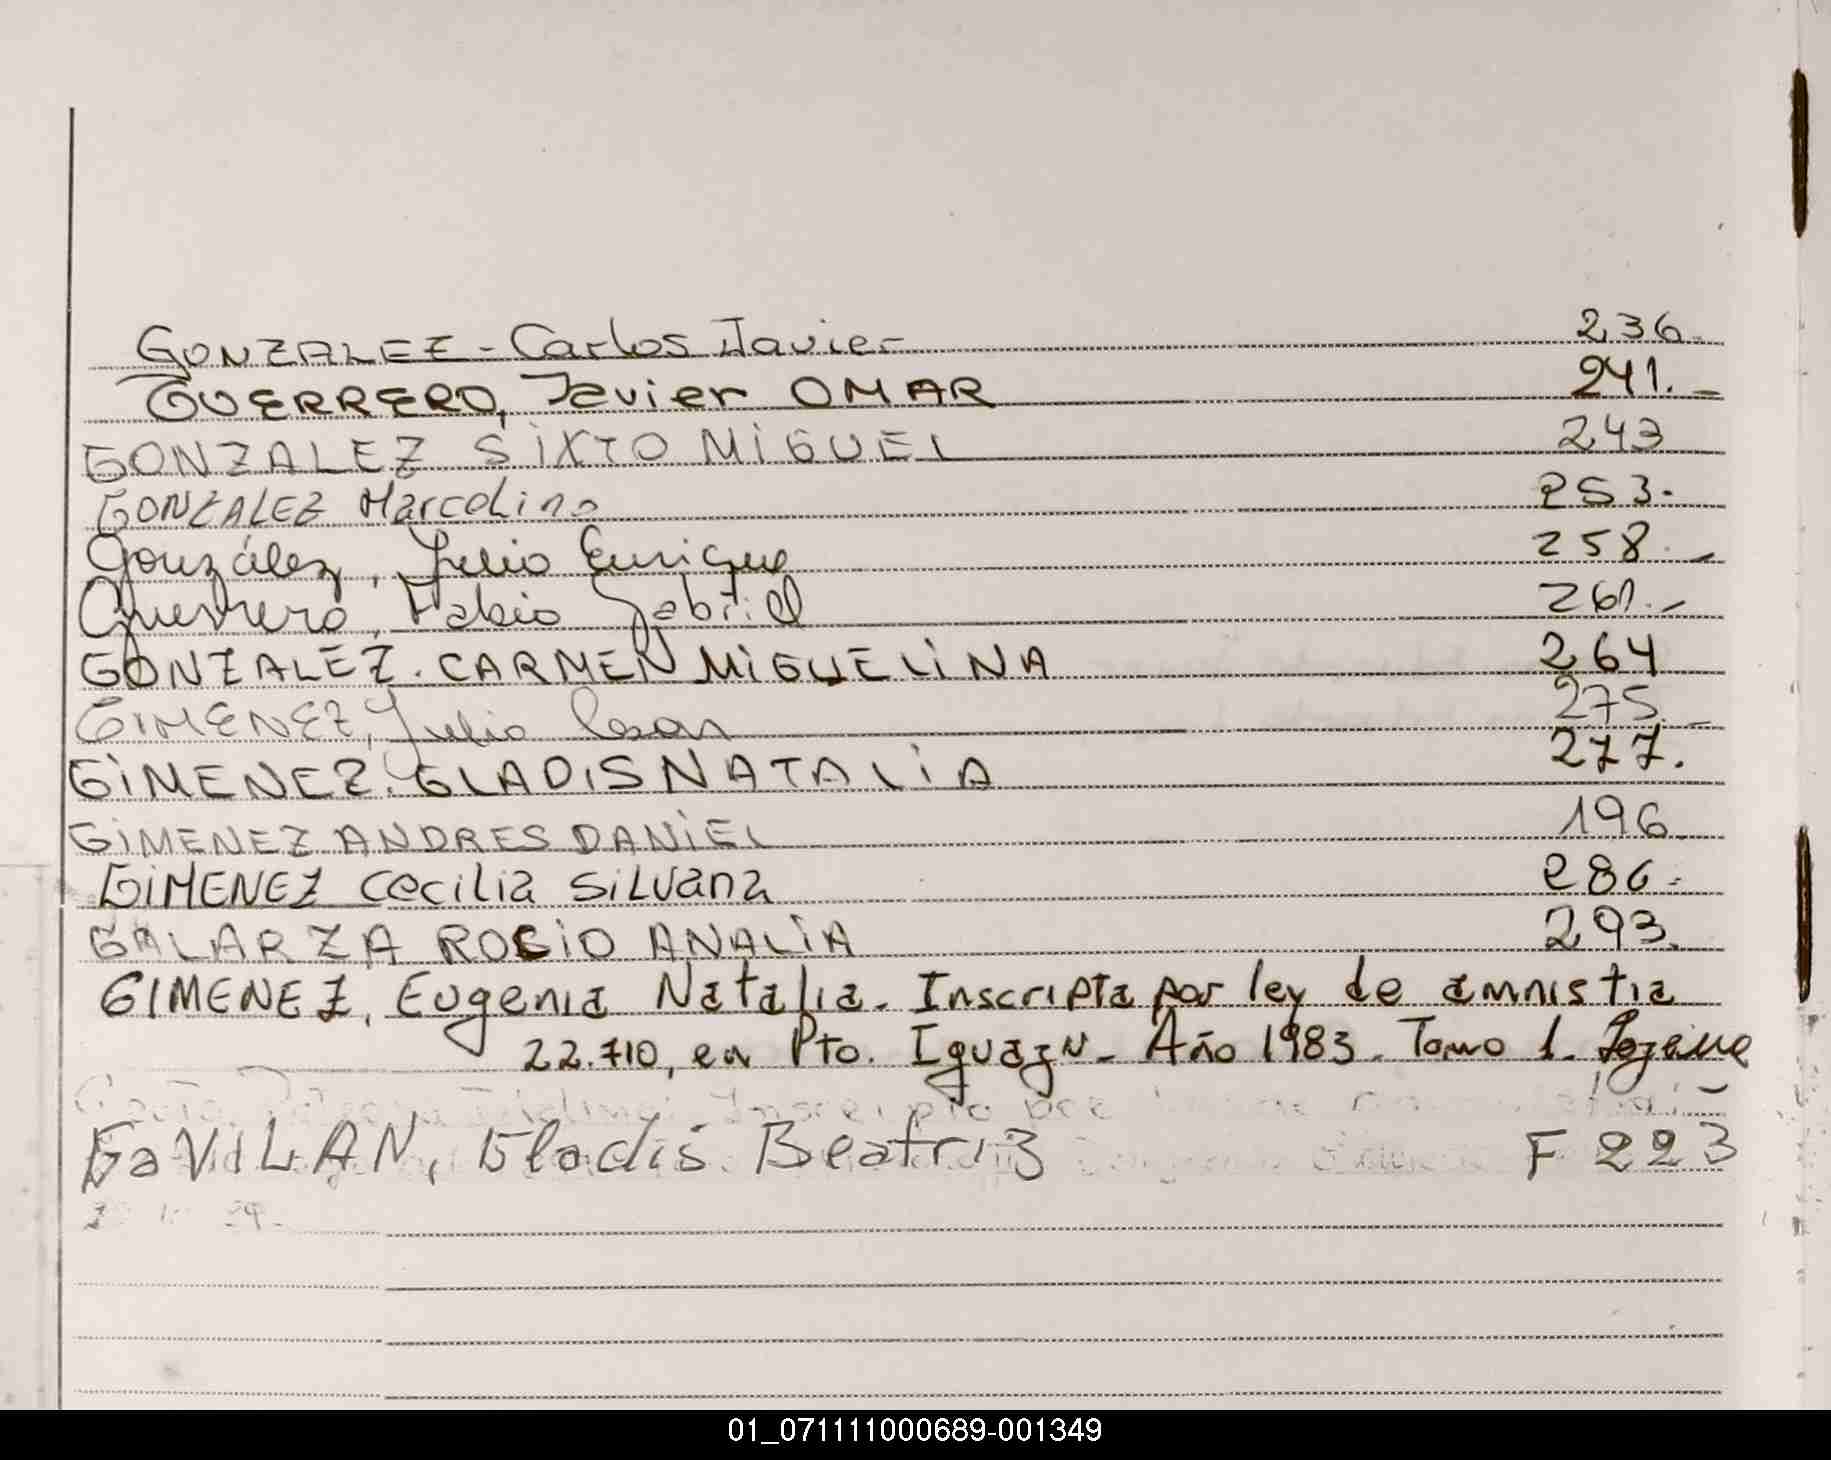 GONZALEZ - Carlos Javier 236.
GUERRERO, Javier OMAR 241.-
GONZALEZ SiXTO MiGUEL 243
GONZALEZ Marcelino 253.
González, Julio Enrique 258.-
Guerrero, Fabio Gabriel 261.-
GONZALEZ. CARMEN MiGUELiNA 264
GIMENEZ, Julio Cesar 275.-
GiMENEZ. GLADIS NATALiA 277.
GiMENEZ ANDRES DANiEL 196
GiMENEZ Cecilia SiLvana 286.
GALARZA ROCiO ANALiA 293.
GIMENEZ, Eugenia Natalia. Inscripta por ley de amnistia
22.710, en Pto. Iguazu - Año 1983. Tomo 1.
GaViLAN, Gladis Beatriz F 223
01_071111000689-001349